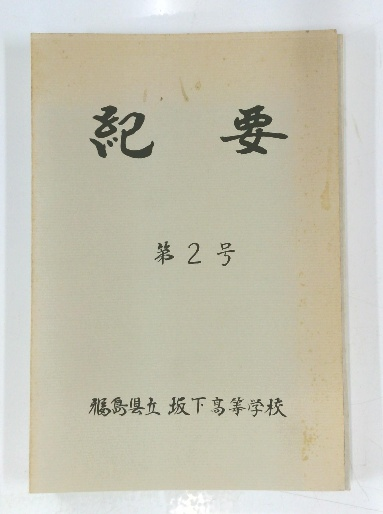 紀要
第2号
福島県立 坂下高等学校